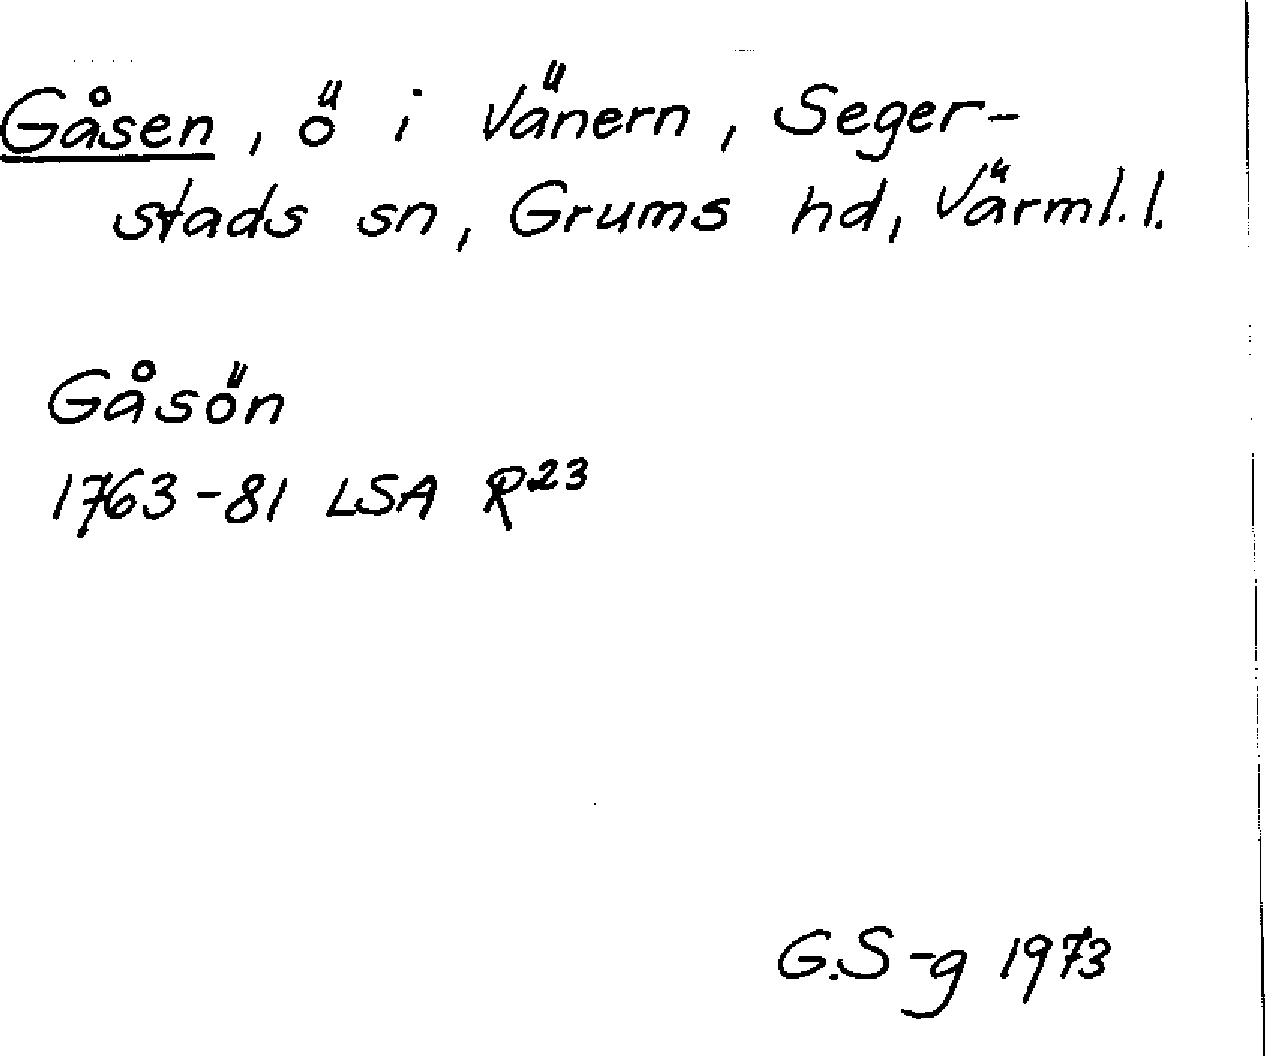 Gåsen, ö i Vänern, Seger-
stads sn, Grums hd, Värml. l.
Gåsön
1763-81 LSA R²³
G.S-g 1973